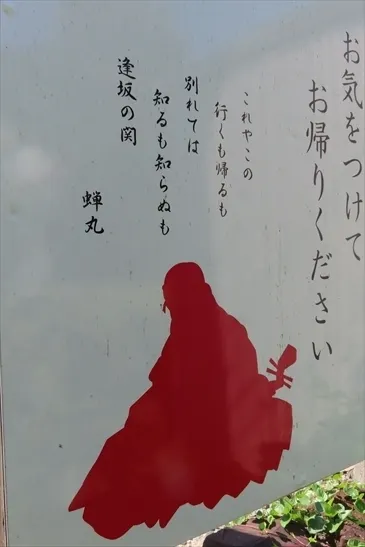 お気をつけて
お帰りください
これやこの
行くも帰るも
別れては
知るも知らぬも
逢坂の関
蝉丸